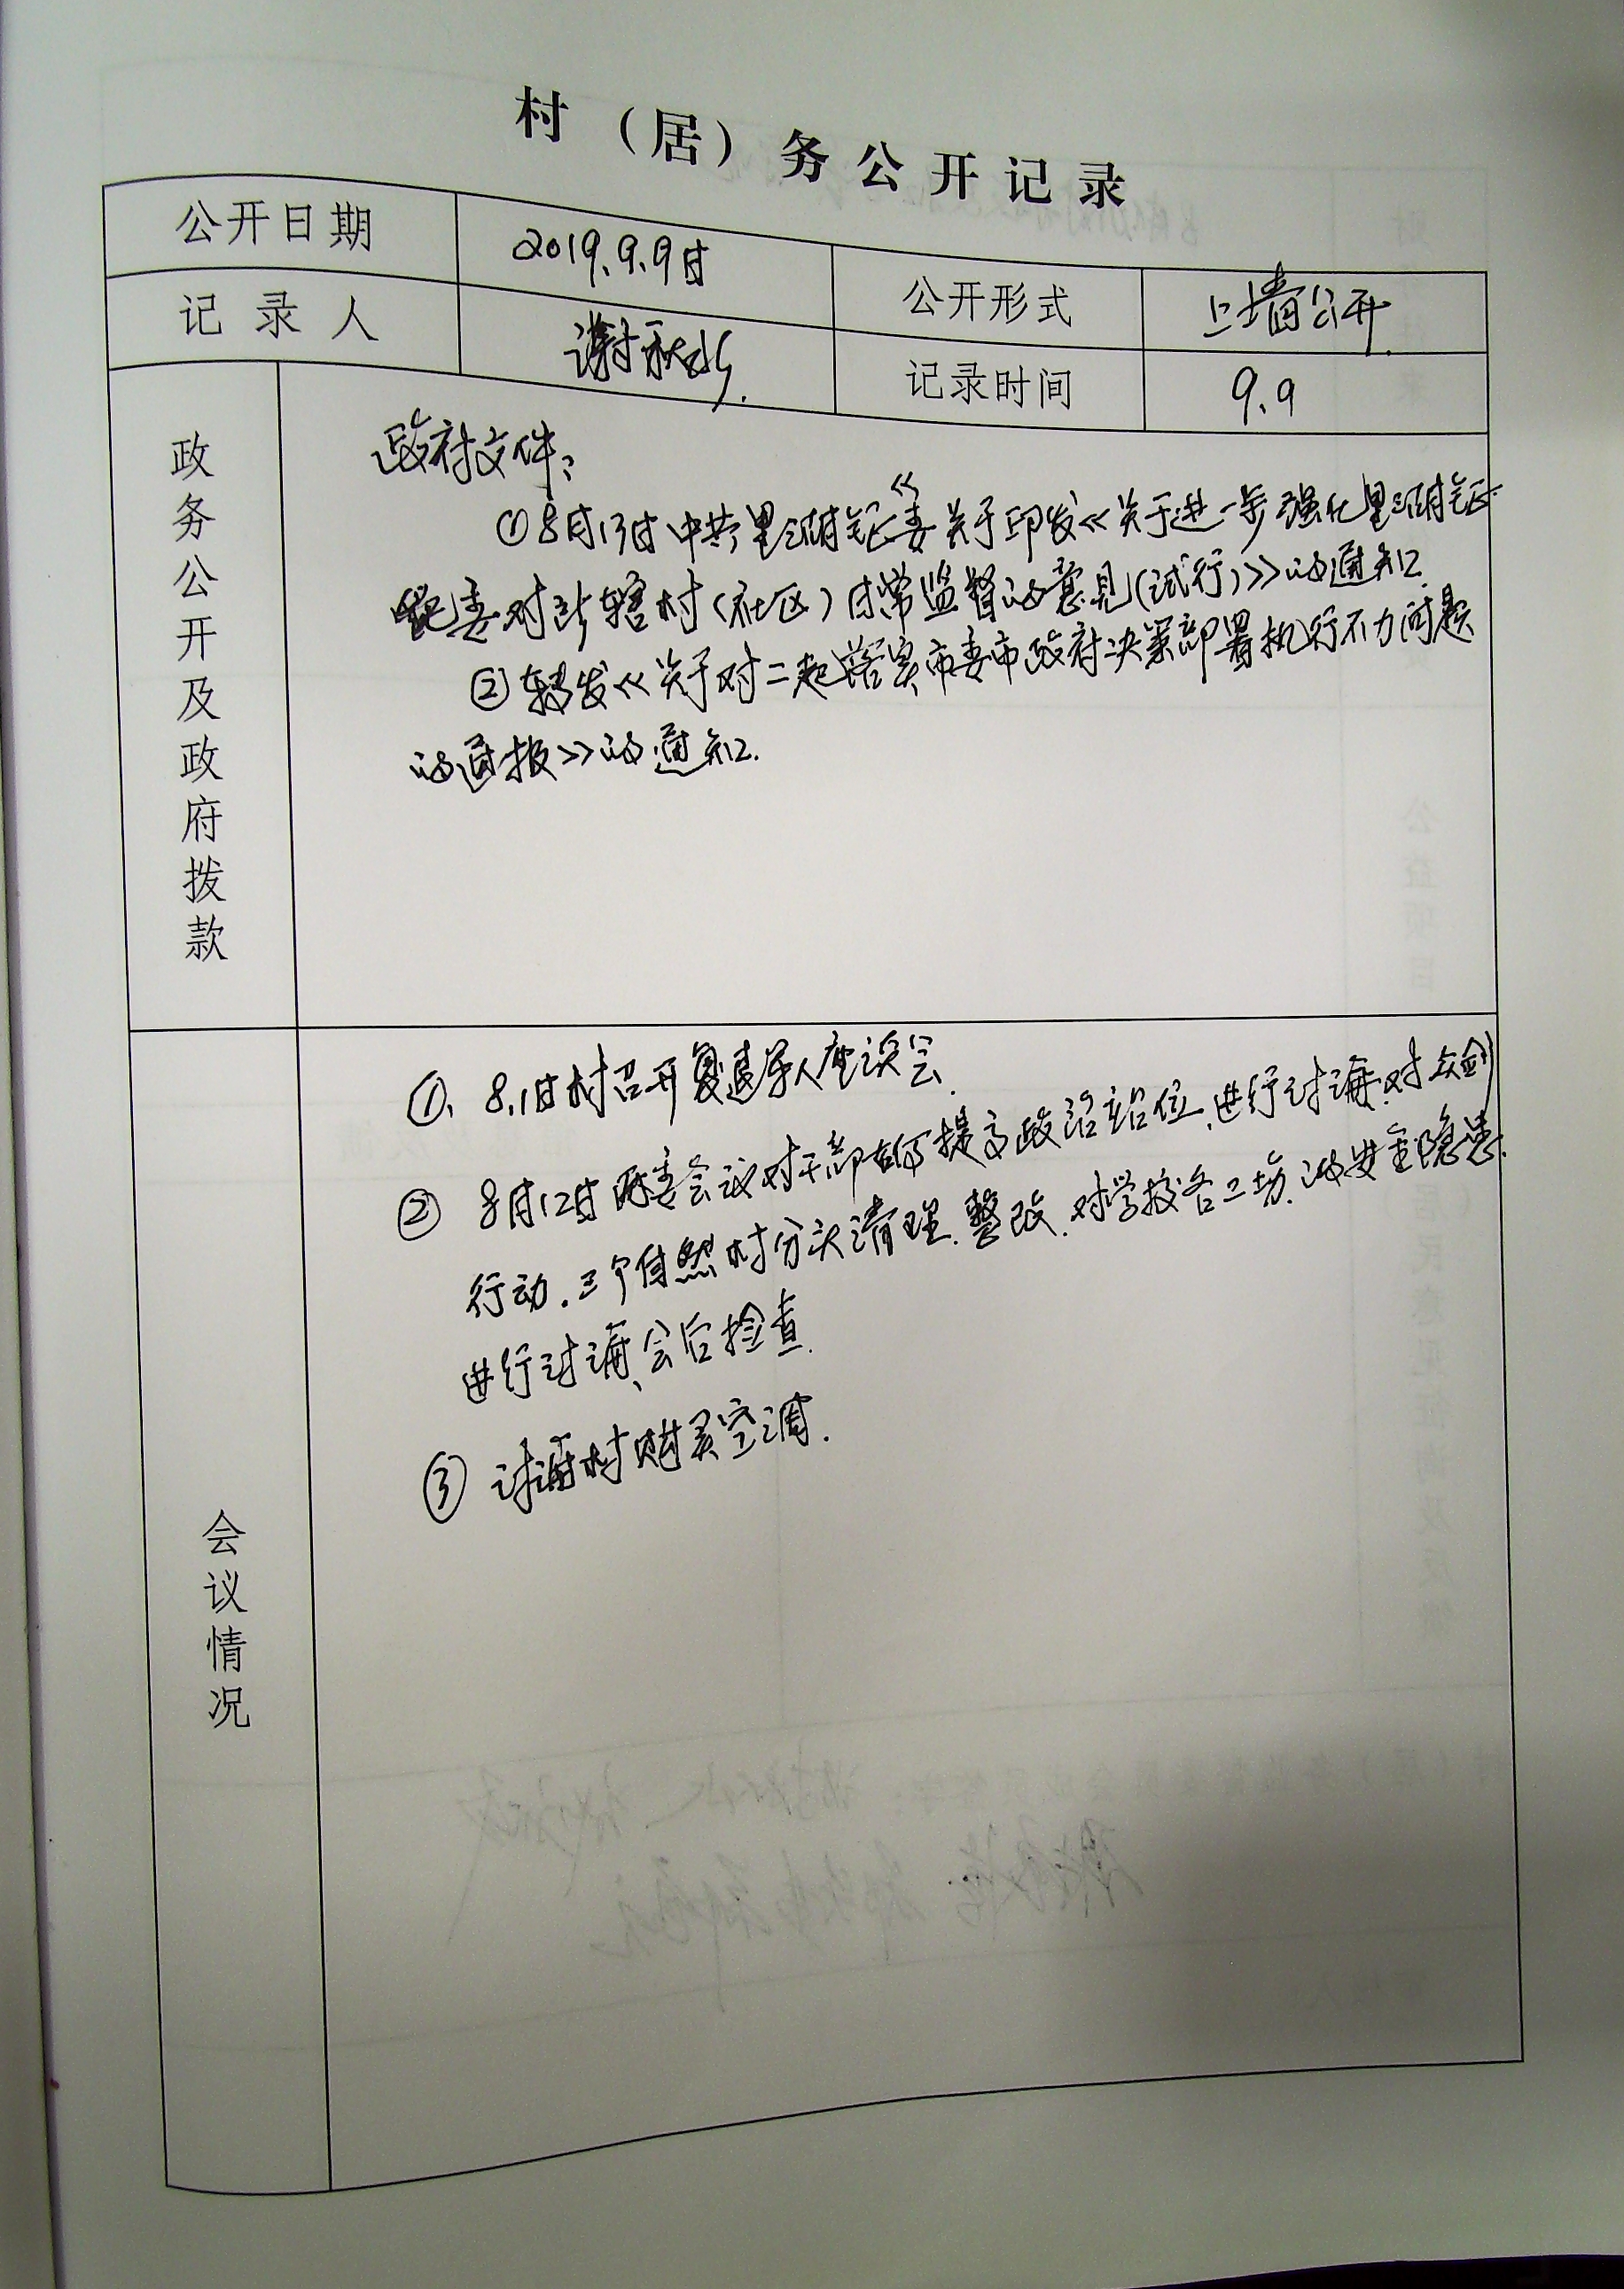 村（居）务公开记录
公开日期 2019.9.9日 公开形式 上墙公开
记录人 谢秋水 记录时间 9.9
政务公开及政府拨款
政府文件：
①8月13日中共里湖镇委《关于印发《关于进一步强化里湖镇
纪委对所辖村（社区）日常监督的意见（试行）》的通知.
②转发《关于对二起落实市委市政府决策部署执行不力问题
的通报》的通知.
会议情况
①、8.1日村召开复退军人座谈会.
② 8月12日两委会议对干部如何提高政治站位、进行讨论.对众剑
行动.三个自然村分头清理.整改.对学校各工坊.的安全隐患.
进行讨论、会后检查.
③ 讨论村购买空调.